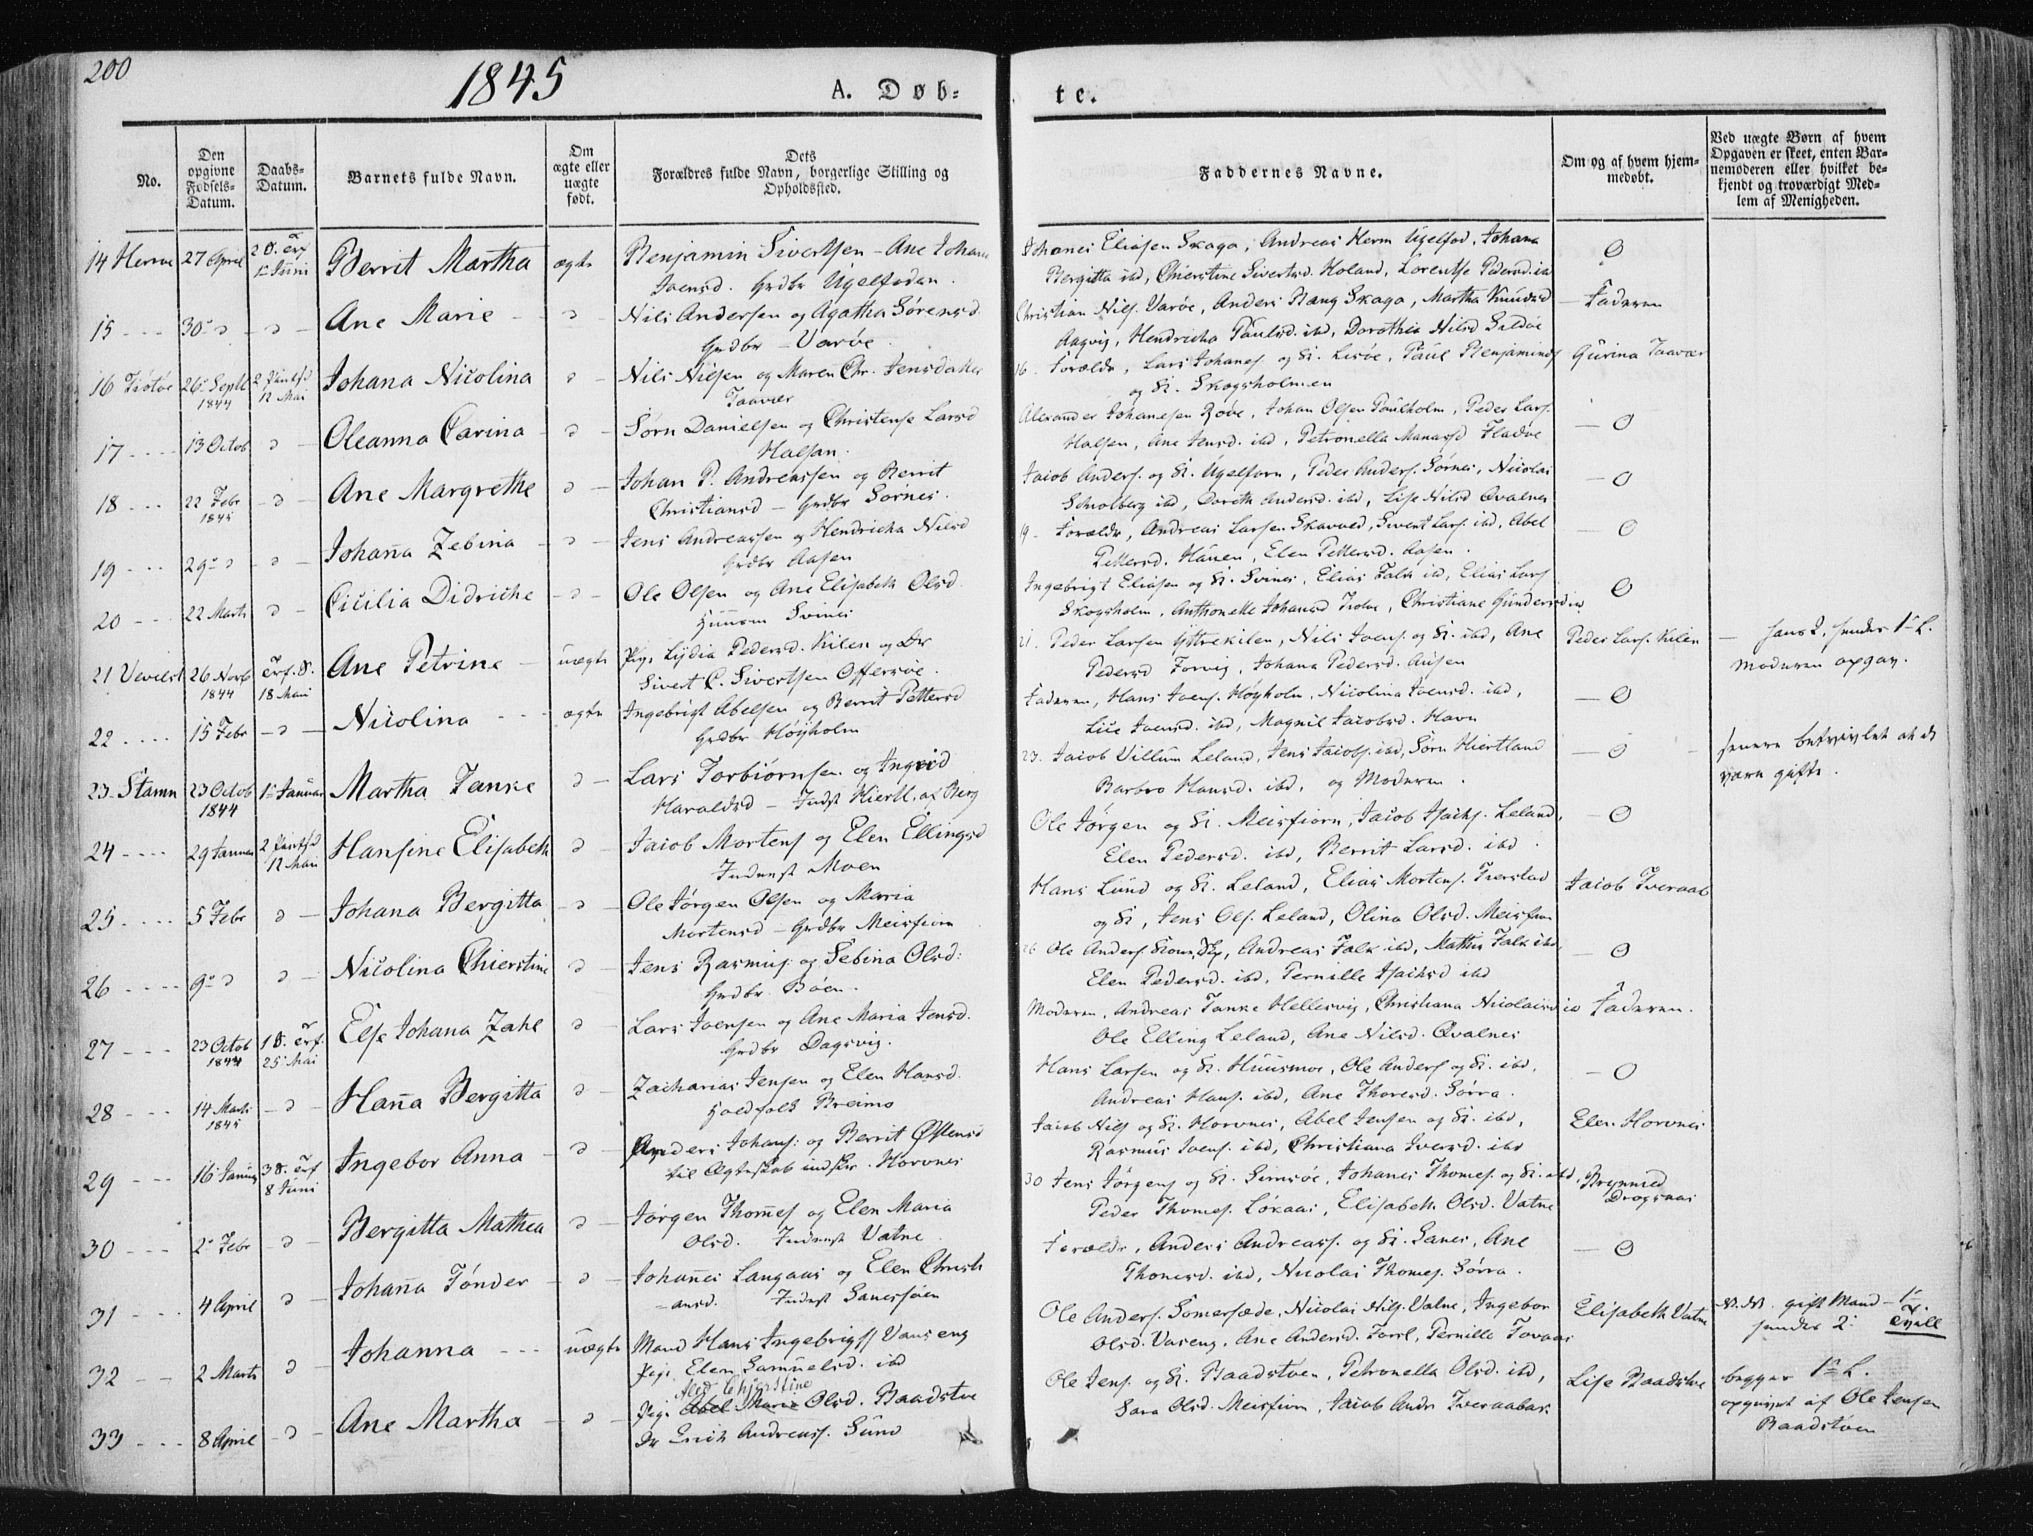 200
1845
A. Døb-
te.
No.
Den opgivne Fødsels-Datum.
Daabs-Datum.
Barnets fulde Navn.
Om ægte eller uægte født.
Dets
Forældres fulde Navn, borgerlige Stilling og Opholdssted.
Faddernes Navne.
Om og af hvem hjemmedøbt.
Ved uægte Børn af hvem
Opgaven er skeet, enten Bar-
nemoderen eller hvilket be-
kjendt og troværdigt Med-
lem af Menigheden.
14 Herrøe 27 April Berrit Martha ægte Benjamin Sivertsen - Ane Johana
Ivensd. Grdbr Ugelfodan.
Johanes Eliasen Skaga, Andreas Herm Ugelfod, Johana
Bergitta ibd, Chierstine Sivertsd. Holand, Lorentse Pedersd. ib
15 30 Ane Marie Nils Andersen og Agatha Sørensd.
Grdbr - Varøe
Christian Nils. Varøe, Anders Bang Skaga, Martha Knudsd
Aagvig, Hendricha Paulsd. ibd, Dorothea Nilsd
Faderen
16 Tiøtøe 26 Septb 1844 12 Mai Johana Nicolina Nils Nilsen og Maren Chr. Jensd
Taavær
Foræld, Lars Johanes og K. Lisøe, Paul Benjamins
og K. Skogsholmen
Gurina Taavær
17 13 Octob Oleanna Carina Sørn Danielsen og Christense Larsd
Halsan.
Alexander Johanesen Røøe, Johan Olsen Paulholm, Peder Lars.
Halsen, Ane Jensd. ibd, Petronella Manassd Fladøe
18 22 Febr 1845 Ane Margrethe Johan P. Andreassen og Berrit
Christiansd - Grdbr Sørnes.
Jacob Anders. og K. Ugelforn, Peder Anders. Sørnes, Nicolai
Scholberg ibd, Doreth Andersd. ibd, Lise Nilsd Qvalnes
19 29 Johaña Zebina Jens Andreassen og Hendricha Nilsd
Grdbr Aasen
Foræld, Andreas Larsen Skavved, Sivert Lars. ibd, Abel
Pettersd. Hauen, Elen Pettersd. Aasen.
20 22 Marts Cicilia Didriche Ole Olsen og Ane Elisabeth Olsd.
Svines
Ingebrigt Eliasen og K. Svines, Elias Falk ibd, Elias Lars
Skogsholm, Anthonette Johansd, Christiane Gundersd
21 Vevelst 26 Novb 1844 18 Mai Ane Petrine uægte Pige Lydia Pedersd. Kilen og Dr
Sivert C. Sivertsen Offersøe.
21. Peder Larsen Yttrekilen, Nils Ivens. og K. ibd, Ane
Pedersd Forvig, Johana Pedersd. Ausen
Peder Lars. Kilen
hans 2, hendes 1 L.
Moderen opgav.
22 15 Febr Nicolina ægte Ingebrigt Abelsen og Berrit Pettersd
Grdbr Høyholm
Faderen, Hans Ivens. Høyholm, Nicolina Ivensd. ibd,
Lise Ivensd. ibd, Magnil Jacobsd. Havn
23 Stamn 23 Octob 1844 1 Januar Martha Tanke Lars Torbiørnsen og Ingrid
Haraldsd - Indst Hiertl. af Berg
23. Jacob Villum Leland, Jens Jacobs. ibd, Sørn Hiertland
Barbro Hansd. ibd, og Moderen.
senere betvivlet at de
være gifte.
24 29 Januar 12 Mai Hansine Elisabeth Jacob Mortens og Elen Ellingsd
Inderst Moen
Ole Jørgen og K. Meisfiorn, Jacob Isachs. Leland,
Elen Pedersd. ibd, Berrit Larsd. ibd.
25 5 Febr Johana Bergitta Ole Jørgen Olsen og Maria
Mortensd - Grdbr Meisfiorn
Hans Lund og K. Leland, Elias Mortens. Tverslad
og K, Jens Ols. Leland, Olina Olsd. Meisfiorn
Jacob Tveraab
26 9 Nicolina Chierstine Jens Rasmus: og Sebina Olsd:
Grdbr Bøen.
26 Ole Anders., Andreas Falk ibd, Mathis Falk ibd,
Elen Pedersd. ibd, Pernille Isachsd ibd
27 23 Octob 1844 25 Mai Else Johana Zahl Lars Ivensen og Ane Maria Jensd.
Grdbr Dagsvig.
Moderen, Andreas Tanke Hellesvig, Christiana Nicolaisd ib
Ole Elling Leland, Ane Nilsd. Qvalnes
Faderen.
28 14 Marts 1845 Haña Bergitta Zacharias Jensen og Elen Hansd.
Holdfolk Breimo
Hans Larsen og K. Huusmoe, Ole Anders og K. ibd,
Andreas Hans. ibd, Ane Thoresd. Sørra.
29 16 Januar 8 Juni Ingebor Anna Anders Johans: og Berrit Østensd
til Ægteskab indskr. Horvnes
Jacob Nils og K. Horvnes, Abel Jensen og K. ibd,
Rasmus Ivens. ibd, Christiana Iversd. ibd
Elen Horvnes
30 2 Febr Bergitta Mathea Jørgen Thomes og Elen Maria
Olsd. Inderst Vatne.
30 Jens Jørgens og K. Simsøe, Johanes Thomes. og K. ibd,
Peder Thomes. Løkaas, Elisabeth Olsd. Vatne
Brynmed
Drogsaas
31 4 April Johaña Tønder Johañes Langaas og Elen Christi
-ansd. Inderst Sanesføen
Forældr, Anders Andreass. og K. Sanes, Ane
Thomesd. ibd, Nicolai Thomes. Sørra.
32 2 Marts Johanna uægte Mand Hans Ingebrigts Vanseng
Pige Elen Samuelsd. ibd
Ole Anders. Somersæde, Nicolai Nils. Vatne, Ingebor
Olsd. Vaseng, Ane Andersd. Forsl, Pernilla Tovaas
Elisabeth Vatne
N.N. gift Mand - 1
hendes 2:
33 8 April Ane Martha Pige Abel Marie Olsd. Baadstøe
Aled Chjerstine
Dr Erich Andreass. Sund
Ole Jens. og K. Baadstøen, Petronella Olsd. ibd,
Sara Olsd. Meisfiorn, Jacob Andr Tveraabak
Lise Baadstøe
begges 1 L.
opgivet af Ole Jensen
Baadstøen